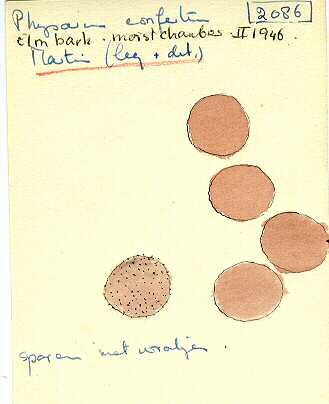 Physarum confertum 2086
Elm bark. moist chamber II 1946.
Martin (leg + det.)
sporen met wratjes.